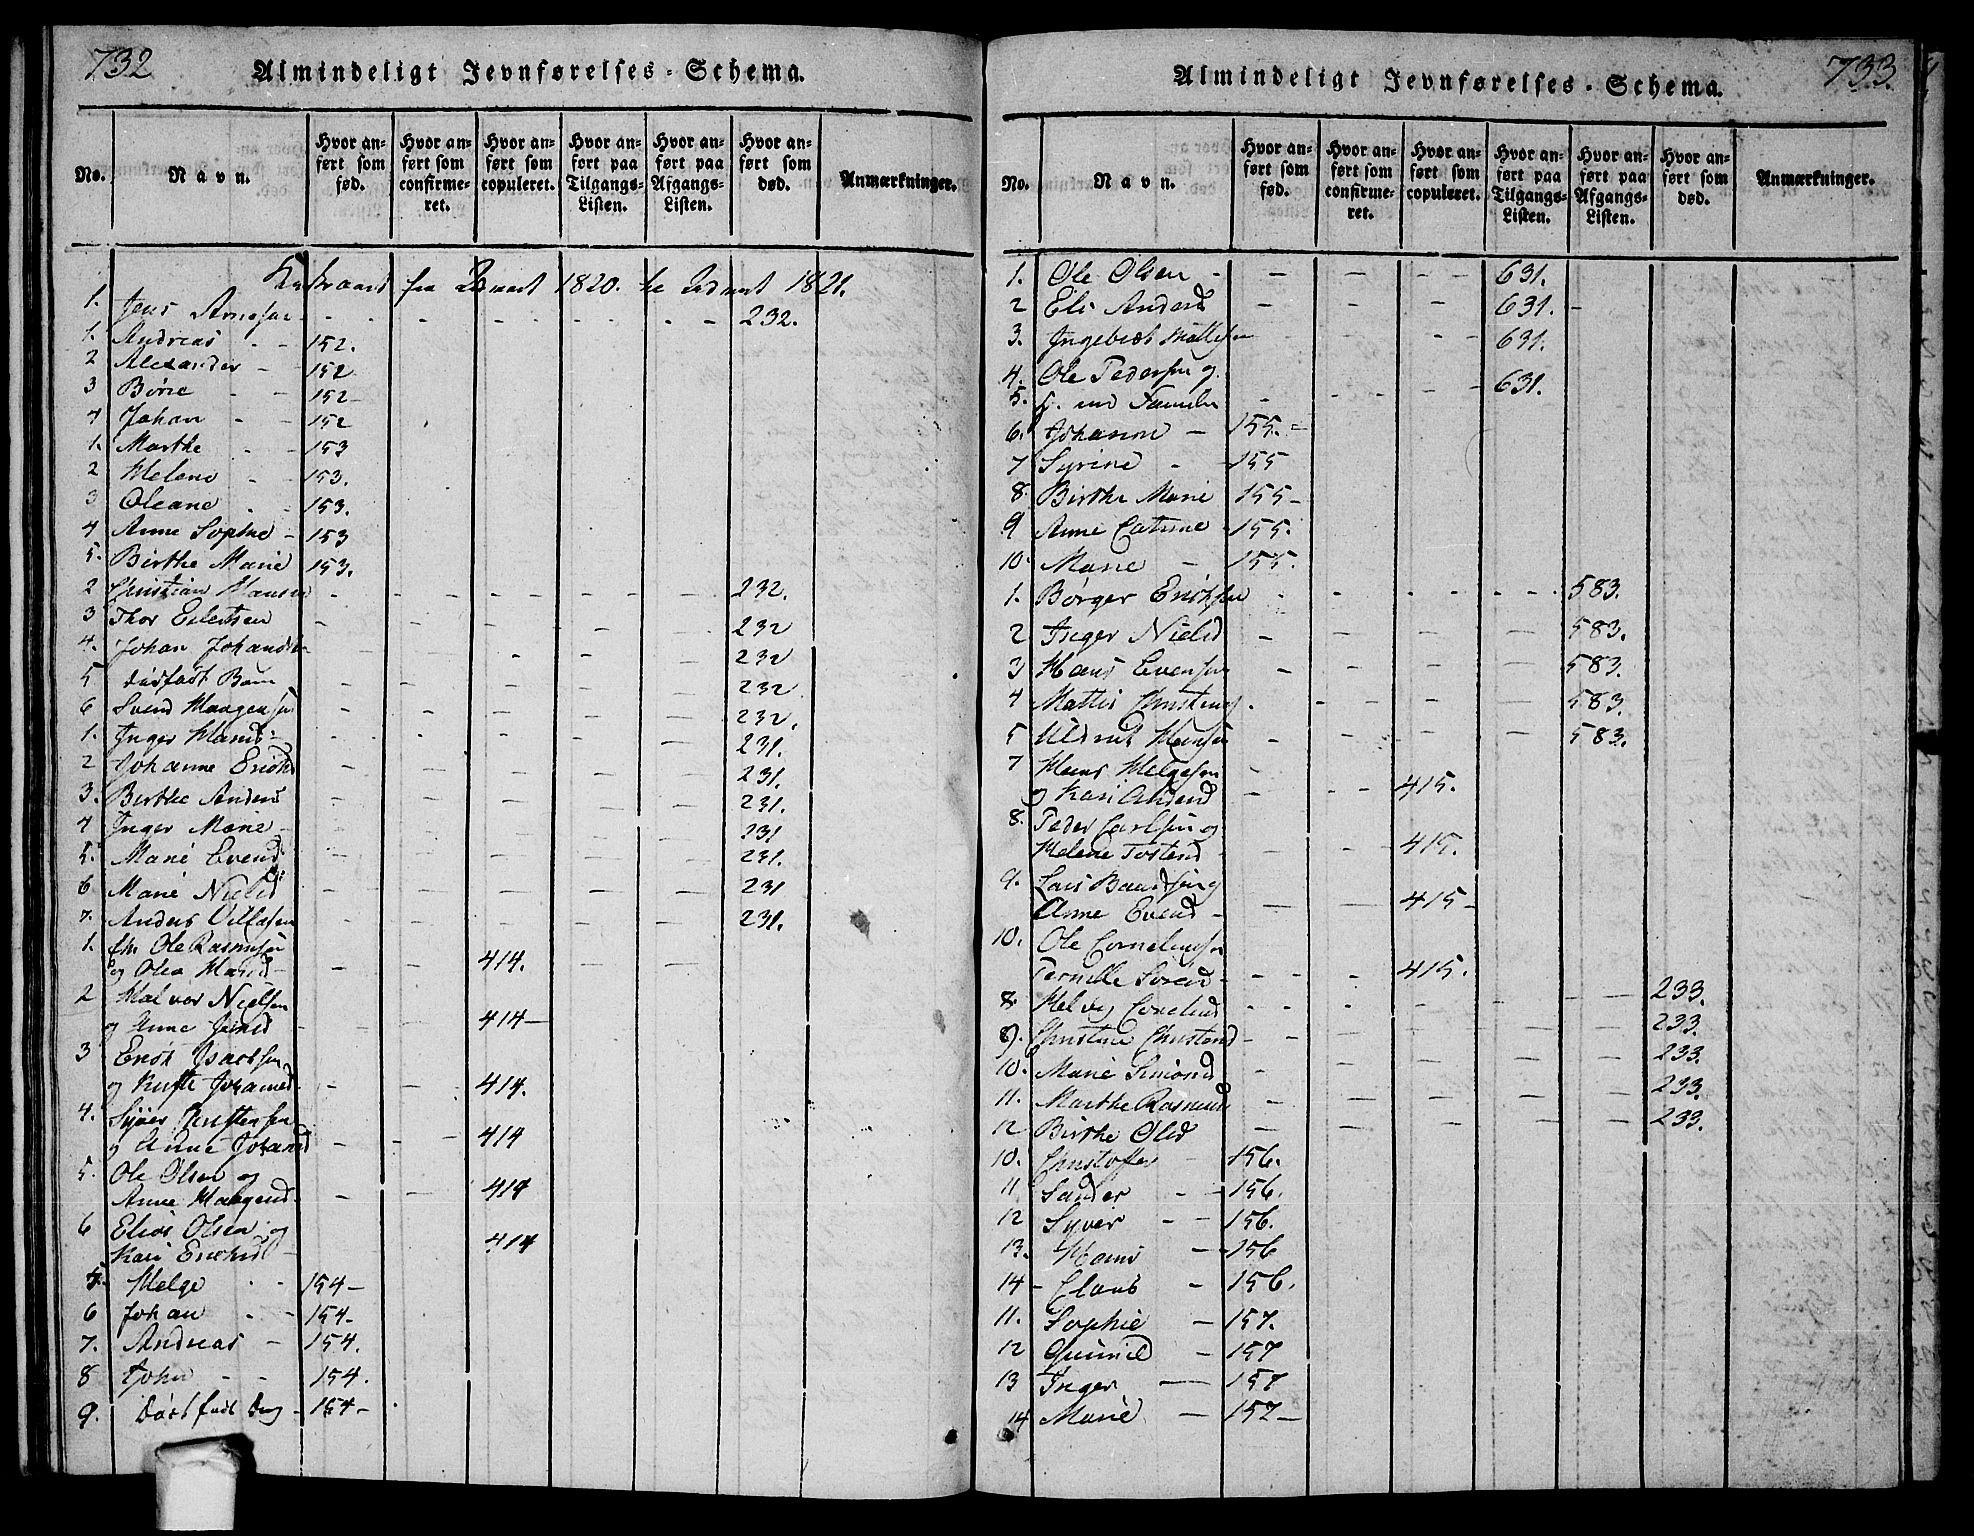 732
Almindeligt Jevnførelses-Schema.
No.
Navn.
Hvor anført som fød.
Hvor anført som confirmeret.
Hvor anført som copuleret.
Hvor anført paa Tilgangs-Listen.
Hvor anført paa Afgangs-Listen.
Hvor anført som død.
Anmærkninger.
1820. 1821.
1. Jens 232.
1. Andreas 152.
2 Alexander 152
3 Børre 152
4 Johan 152
1. Marthe 153
2 Helene 153.
3 Oleane 153.
4 Anne Sophie 153
5. Birthe Marie 153.
2 Christian Hansen 232.
3 Thor Eilertsen 232
4. Johan Johands 232
5 dødfødt Barn 232
6 Svend Haagens 232.
1. Inger Hansd 231.
2 Johanne Ericks 231.
3. Birthe Anders 231.
4 Inger Marie 231
5. Marie Evens 231.
6 Marie Nielsd 231
7. Anders 231.
1. Ole Rasmusen
og Olea Hansd 414.
2 Halvor Nielsen
og Anne 414
3 Erick Isacksen
og Johannesd 414.
4.
og Anne Johansd 414
5. Ole Olsen og
Anne Haagensd 414
6 Elias Olsen og
Kari Ericksd 414
5. Helge 154
6 Johan 154
7. Andreas 154.
8 John 154.
9. dødfødt Dreng 154
733.
Almindeligt Jevnførelses-Schema.
No.
Navn.
Hvor anført som fød.
Hvor anført som confirmeret.
Hvor anført som copuleret.
Hvor anført paa Tilgangs-Listen.
Hvor anført paa Afgangs-Listen.
Hvor anført som død.
Anmærkninger.
1. Ole Olsen 631.
2 Eli Andersd 631.
3. Ingebret 631.
4. Ole Pedersen og
5. Familie 631.
6. Johanne 155.
7 Syrine 155
8. Birthe Marie 155
9 Anne Catrine 155.
10. Marie 155.
1. Børger Ericksen 583.
2 Inger Nielsd 583.
3 Hans Evensen 583.
4 Mattis 583.
5 Hansen 583.
7 Hans Helgesen
og Kari 415.
8. Peder Carlsen og
Helene Tostensd 415.
9. Lars
Anne Evensd 415
10. Ole Corneliusen
Pernille 415.
8. 233.
9. Christine Christensd 233.
10. Marie Simonsd 233.
11. Marthe Rasmusd 233.
12 Birthe Olsd 233.
10. Christoffer 156.
11 Sander 156.
12 Syver 156.
13. Hans 156
14 Claus 156.
11. Sophie 157.
12 Gunnild 157
13 Inger 157
14 Marie 157